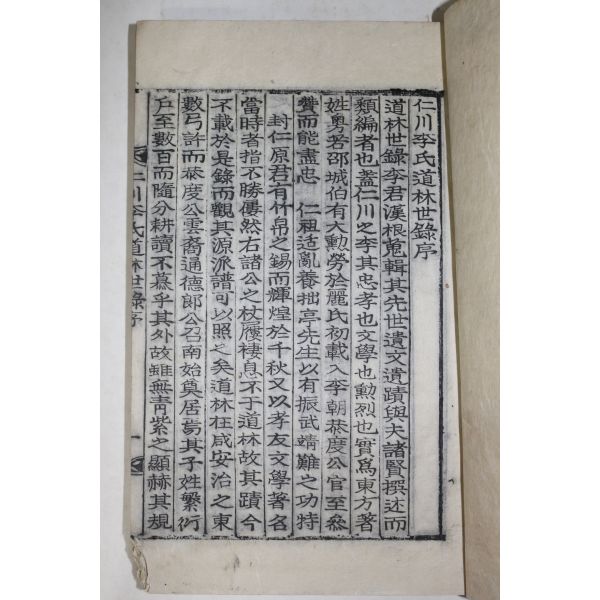 仁川李氏道林世錄序
道林世錄李君漢根蒐輯其先世遺文遺蹟與夫諸賢撰述而
類編者也蓋仁川之李其忠孝也文學也勳烈也實爲東方著
姓粤若邵城伯有大勳勞於麗氏初載入李朝恭度公官至叅
贊而能盡忠 仁祖适亂養拙亭先生以有振武靖難之功特
封仁原君有竹帛之錫而輝煌於千秋又以孝友文學著名
當時者指不勝僂然右諸公之杖屨棲息不于道林故其蹟今
不載於是錄而觀其源派譜可以照之矣道林在咸安治之東
數弓許而恭度公雲裔通德郎公召南始奠居焉其子姓繁衍
戶至數百而隨分耕讀不慕乎其外故雖無靑紫之顯赫其規
仁川李氏道林世錄序 一